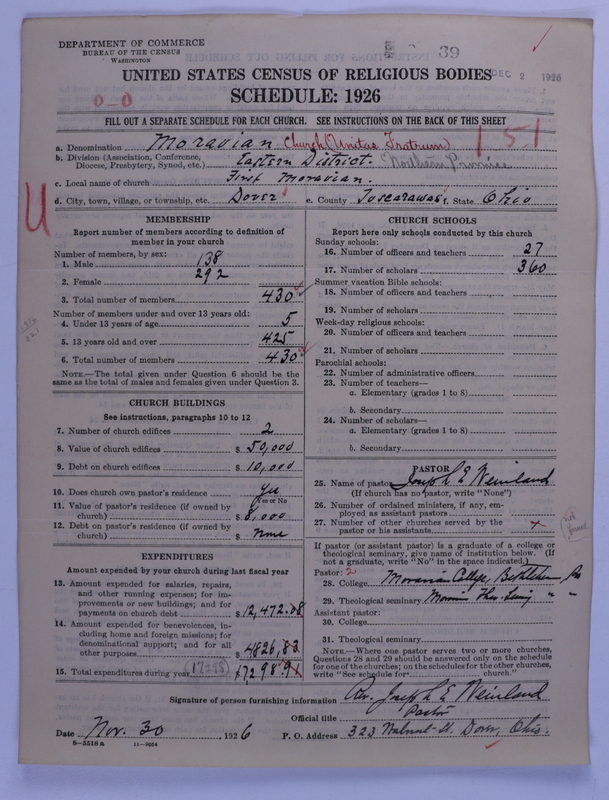 DEPARTMENT OF COMMERCE
BUREAU OF THE CENSUS
WASHINGTON
39
DEC 2 1926
UNITED STATES CENSUS OF RELIGIOUS BODIES
SCHEDULE: 1926
0-0
FILL OUT A SEPARATE SCHEDULE FOR EACH CHURCH. SEE INSTRUCTIONS ON THE BACK OF THIS SHEET
a. Denomination Moravian Church (Unitas Fratrum) 151
b. Division (Association, Conference, Diocese, Presbytery, Synod, etc.) Eastern District. Northern Province
c. Local name of church First Moravian.
d. City, town, village, or township, etc. Dover e. County Tuscarawas f. State Ohio
U
MEMBERSHIP
Report number of members according to definition of
member in your church
Number of members, by sex:
1. Male 138
2. Female 292
3. Total number of members 430
Number of members under and over 13 years old:
4. Under 13 years of age 5
5. 13 years old and over 425
6. Total number of members 430
NOTE.—The total given under Question 6 should be the
same as the total of males and females given under Question 3.
CHURCH BUILDINGS
See instructions, paragraphs 10 to 12
7. Number of church edifices 2
8. Value of church edifices $ 50,000
9. Debt on church edifices $ 10,000
10. Does church own pastor's residence Yes
Yes or No
11. Value of pastor's residence (if owned by
church) $ 8,000
12. Debt on pastor's residence (if owned by
church) $ None
EXPENDITURES
Amount expended by church during last fiscal year
13. Amount expended for salaries, repairs,
and other running expenses; for im-
provements or new buildings; and for
payments on church debt $ 12,472.08
14. Amount expended for benevolences, in-
cluding home and foreign missions; for
denominational support; and for all
other purposes $ 4826.83
15. Total expenditures during year (17298) 17298.91
CHURCH SCHOOLS
Report here only schools conducted by this church
Sunday schools:
16. Number of officers and teachers 27
17. Number of scholars 360
Summer vacation Bible schools:
18. Number of officers and teachers
19. Number of scholars
Week-day religious schools:
20. Number of officers and teachers
21. Number of scholars
Parochial schools:
22. Number of administrative officers
23. Number of teachers—
a. Elementary (grades 1 to 8)
b. Secondary
24. Number of scholars—
a. Elementary (grades 1 to 8)
b. Secondary
PASTOR
25. Name of pastor Joseph E Weinland
(If church has no pastor, write "None")
26. Number of ordained ministers, if any, em-
ployed as assistant pastors
27. Number of other churches served by the
pastor or his assistants x
If pastor (or assistant pastor) is a graduate of a college or
theological seminary, give name of institution below. (If
not a graduate, write "No" in the space indicated.)
Pastor: 2
28. College Moravian College, Bethlehem Pa
29. Theological seminary " "
Assistant pastor:
30. College
31. Theological seminary
NOTE.—Where one pastor serves two or more churches,
Questions 28 and 29 should be answered only on the schedule
for one of the churches; on the schedules for the other churches,
write "See schedule for church."
Signature of person furnishing information Rev. Joseph E Weinland
Official title Pastor
Date Nov. 30 1926 P. O. Address 323 Walnut St. Dover, Ohio.
8-5318a 11-9054